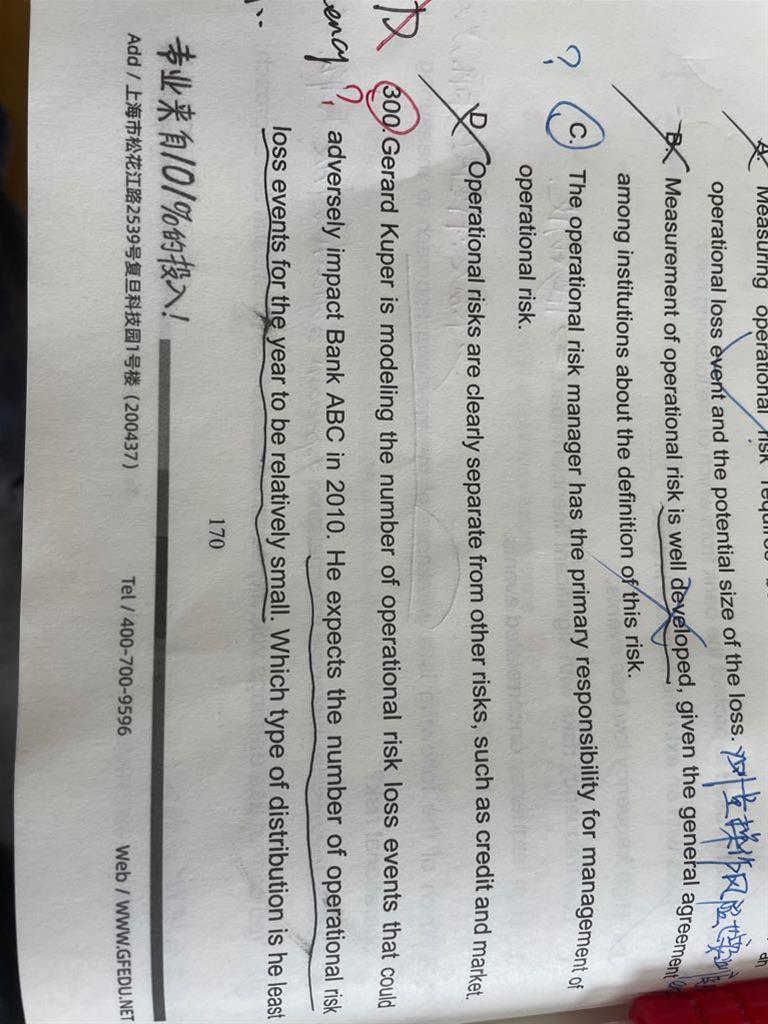 A. Measuring operational risk
operational loss event and the potential size of the loss.
B. Measurement of operational risk is well developed, given the general agreement
among institutions about the definition of this risk.
? C. The operational risk manager has the primary responsibility for management of
operational risk.
D. Operational risks are clearly separate from other risks, such as credit and market.
300. Gerard Kuper is modeling the number of operational risk loss events that could
? adversely impact Bank ABC in 2010. He expects the number of operational risk
loss events for the year to be relatively small. Which type of distribution is he least
170
专业来自101%的投入!
Add / 上海市松花江路2539号复旦科技园1号楼 (200437) Tel / 400-700-9596 Web / WWW.GFEDU.NET